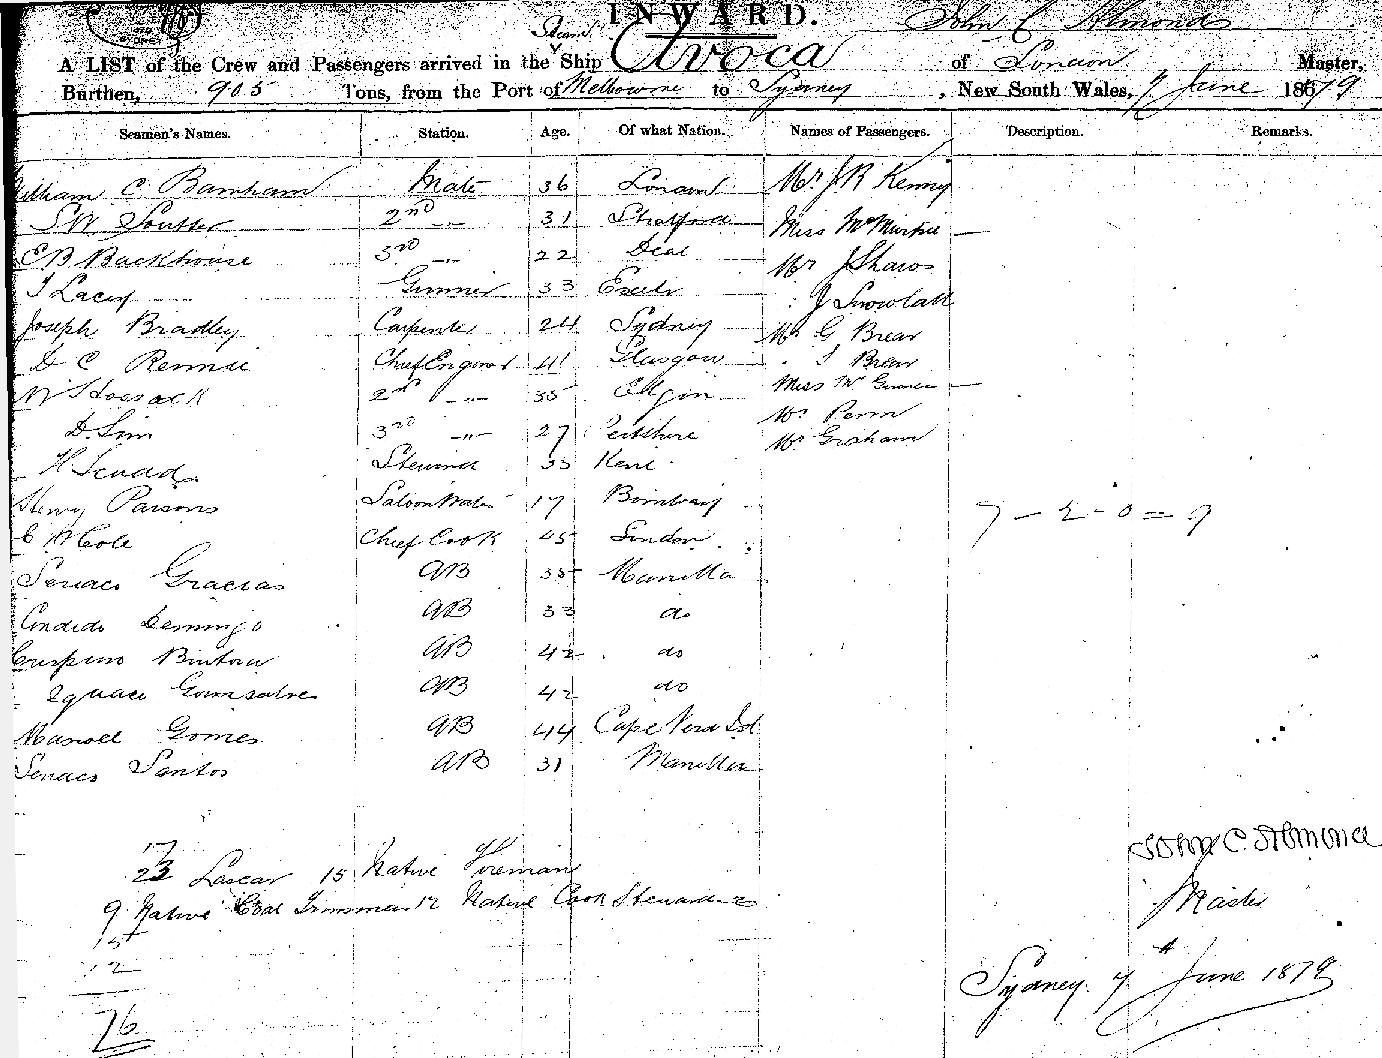 INWARD.
John C Almond
A LIST of the Crew and Passengers arrived in the Steam Ship Avoca of London Master,
Burthen, 905 Tons, from the Port of Melbourne to Sydney, New South Wales, 7 June 1879
Seamen's Names. Station. Age. Of what Nation. Names of Passengers. Description. Remarks.
William C Barnham Mate 36 London Mr J R Kenny
S W 2nd " 31 Stratford Miss McMurtrie
E B Backhouse 3rd " 22 Deal Mr J Sharos
T Lacey Gunner 33 Exeter J
Joseph Bradley Carpenter 24 Sydney Mr G Brear
D C Rennie Chief Engineer 41 Glasgow " J Brear
W Hossack 2nd " 35 Elgin Miss
D. Sim 3rd " 27 Perthshire Mr Penn
H Steward 33 Kent Mr Graham
Henry Parsons Saloon Waiter 17 Bombay
C W Cole Chief Cook 45 London
7 - 2 - 0 = 9
Gracias AB 35 Manilla
Candido Domingo AB 33 do
Crispino AB 42 do
Gonsalves AB 42 do
Manoel Gomes AB 44 Cape Verd Isl
Santos AB 31 Manilla
17
23 Lascar 15 Native Fireman
9 Native Coal Trimmer 12 Native Cook Stewards
15
12
76
John C. Almond
Master
Sydney 7th June 1879